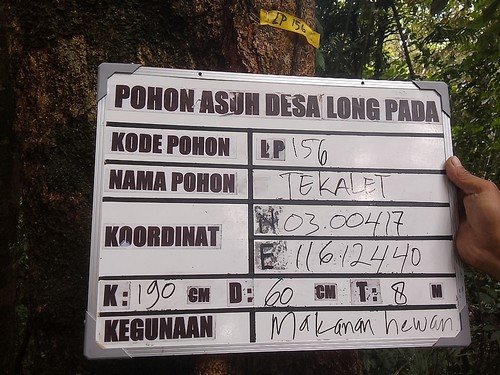 LP 156
POHON ASUH DESA LONG PADA
KODE POHON LP 156
NAMA POHON TEKALET
KOORDINAT N 03.00417
E 116.12440
K: 190 CM D: 60 CM T: 8 M
KEGUNAAN Makanan hewan